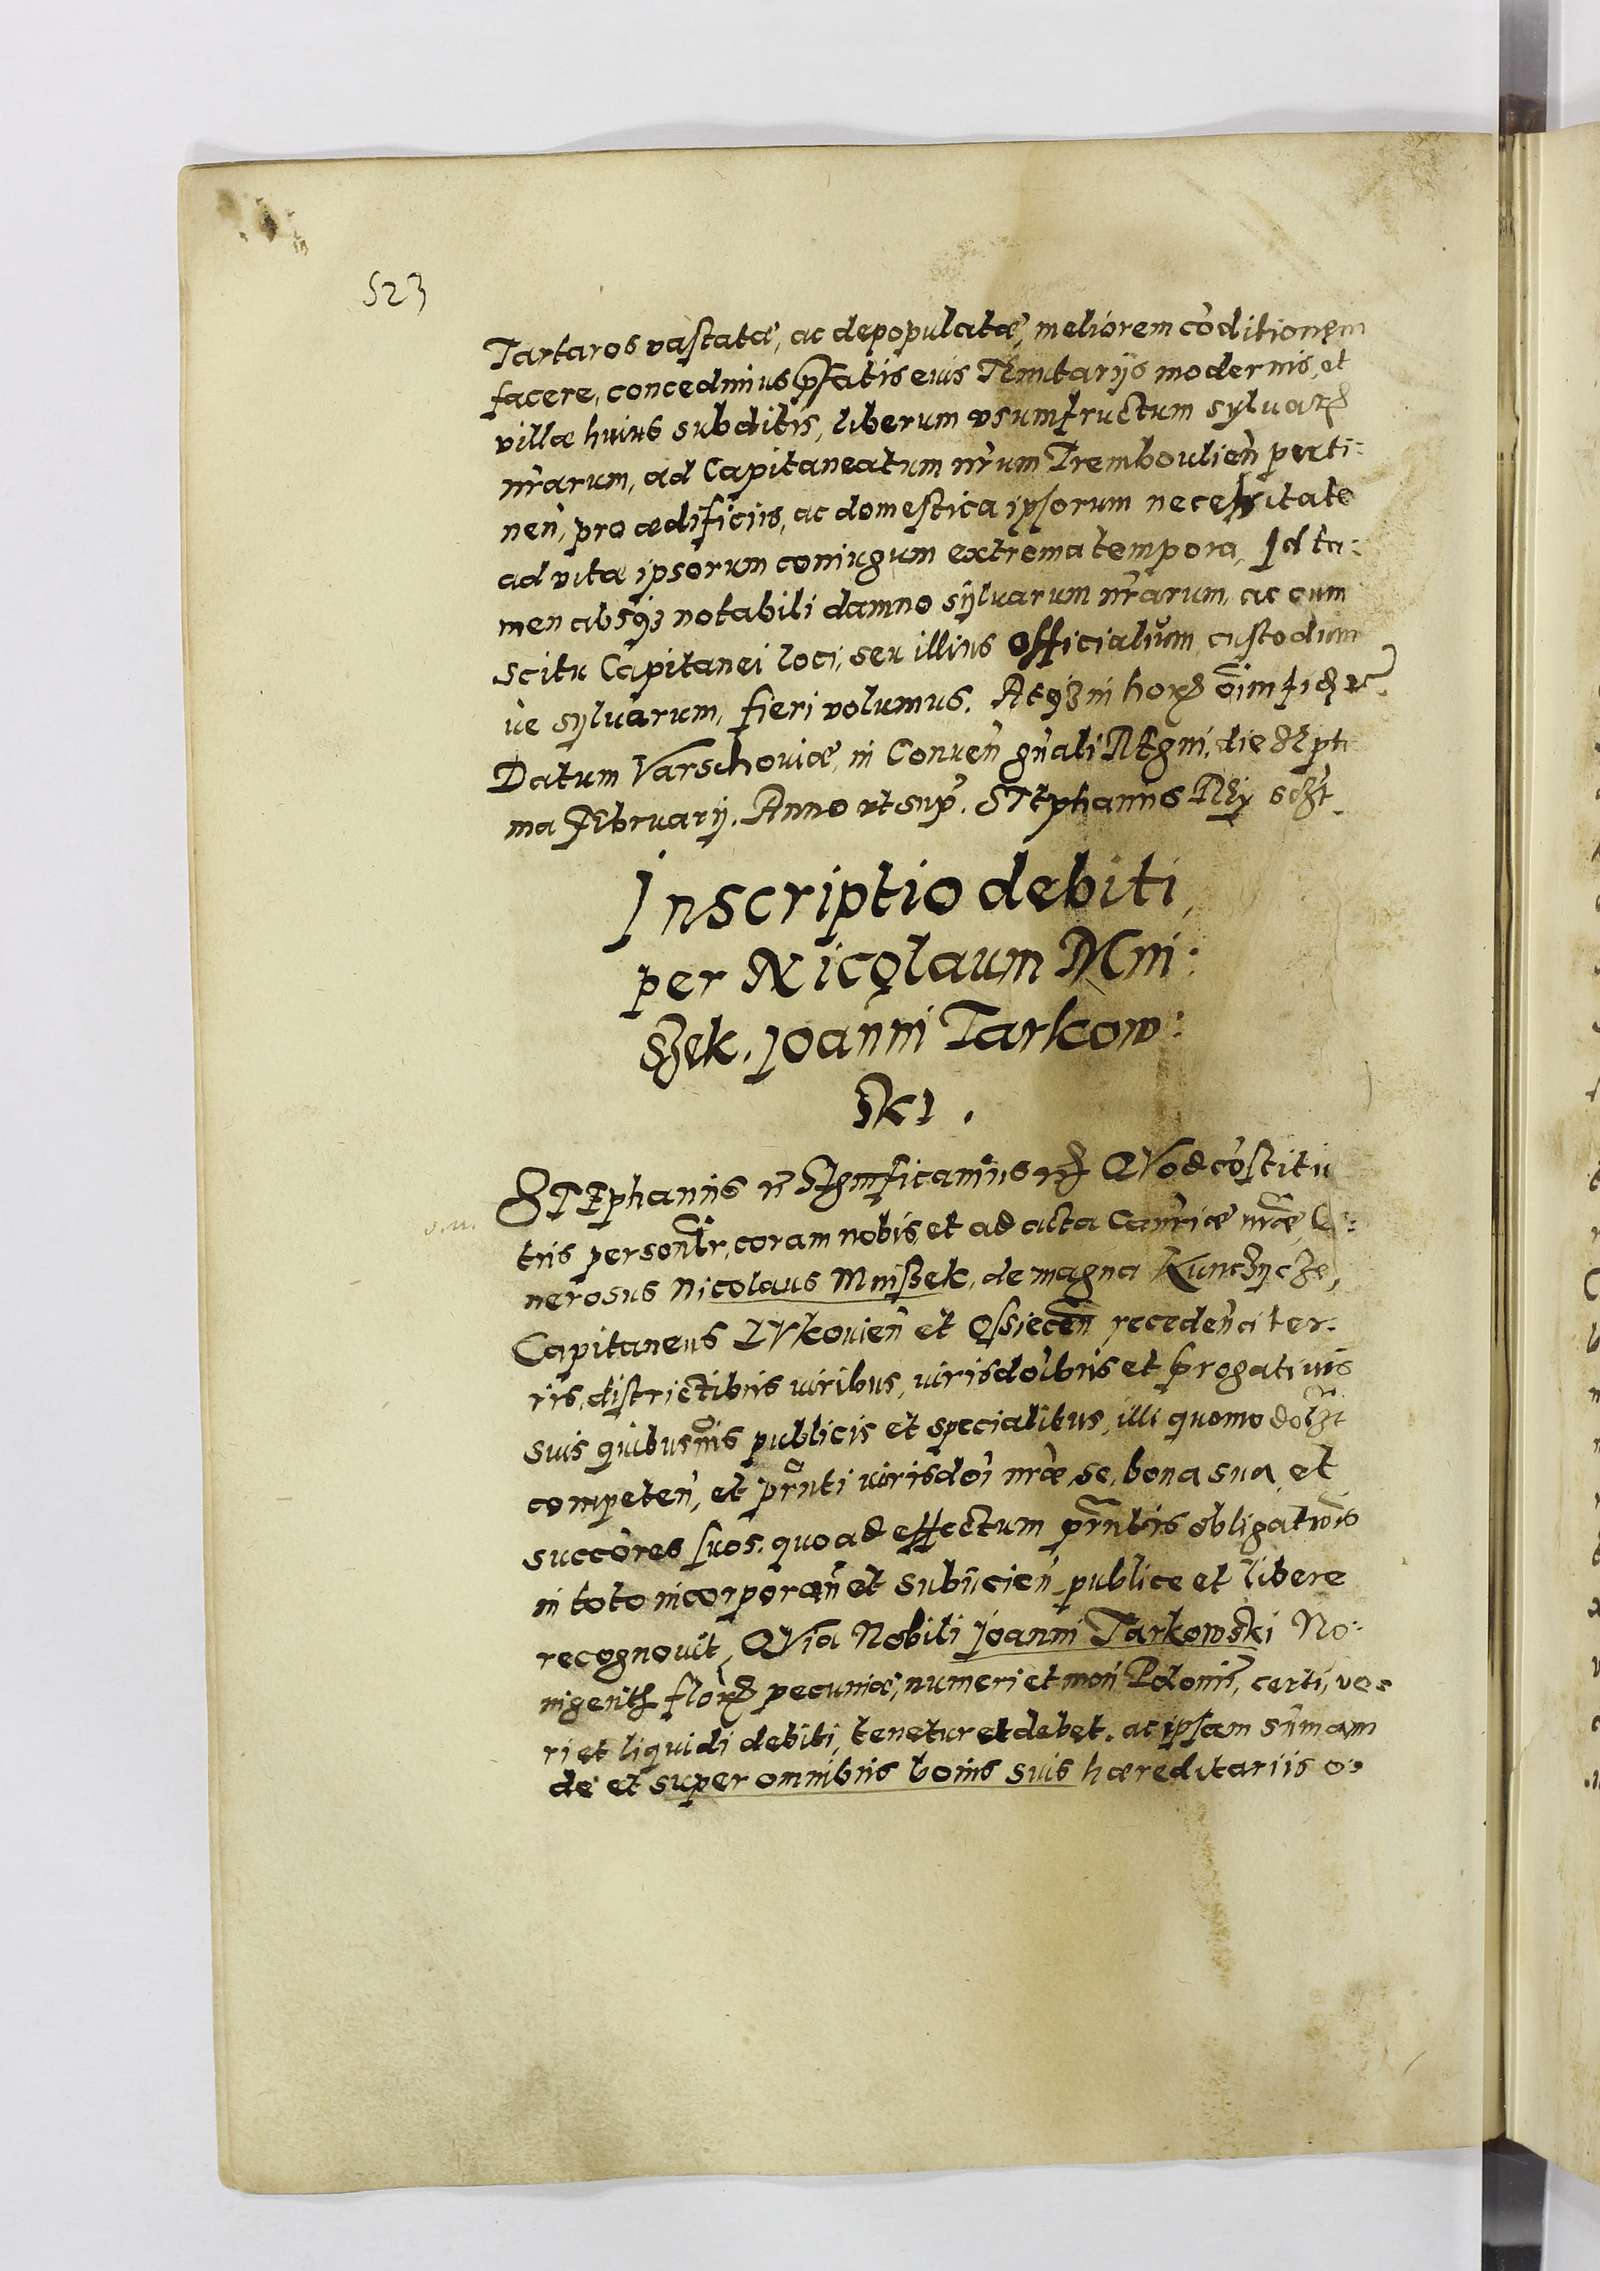 523
Tartaros vastatæ, ac depopulatæ, meliorem cōditionem
facere, concedimus pfatis eius Tenutariis modernis, et
villæ huius subditis, liberum vsumfructum syluarꝝ
nrārum, ad Capitaneatum nrūm Tremboulien̄ perti:
nen̄, pro ædificiis, ac domestica ipsorum necessitate
ad vitæ ipsorum coniugum extrema tempora, Id ta:
men absqȝ notabili damno syluarum nrārum, ac cum
scitu Capitanei loci, seu illius officialium, custodum
ue syluarum, fieri volumus. Atqȝ in horꝝ oīm fidē
Datum Varschouiæ, in Conuen̄ gn̄ali Regni, die Septi
ma Februarij. Anno vt sup. Stephanus Rex sczt
Inscriptio debiti,
per Nicolaum Mni:
szek. Joanni Tarkow:
ski.
STEphanus Significamus Quod cōstitu
tus personlr, coram nobis, et ad acta Canriæ nrāe, Ge:
nerosus Nicolaus Mniszek, de magna Kunczycze,
Capitaneus Lukouien̄ et Ossiecen̄ recedenci ter:
ris, districtibus iuribus, iurisdoībus et progatiuis
suis quibusuis publicis et specialibus, illi quomodolzt
competen̄, et prn̄ti iurisdoī nrāe, se, bona sua et
succōres suos. quoad effectum prn̄tis obligatiōis
in toto incorporan̄ et subiicien̄ publice et libere
recognouit, Quia Nobili Joanni Tarkowski No:
ningent florꝝ pecuniæ, numeri et mon̄ Polonic, certi, ve:
ri et liquidi debiti, tenetur et debet. ac ipsam sūmam
de et super omnibus bonis suis hæreditariis o: